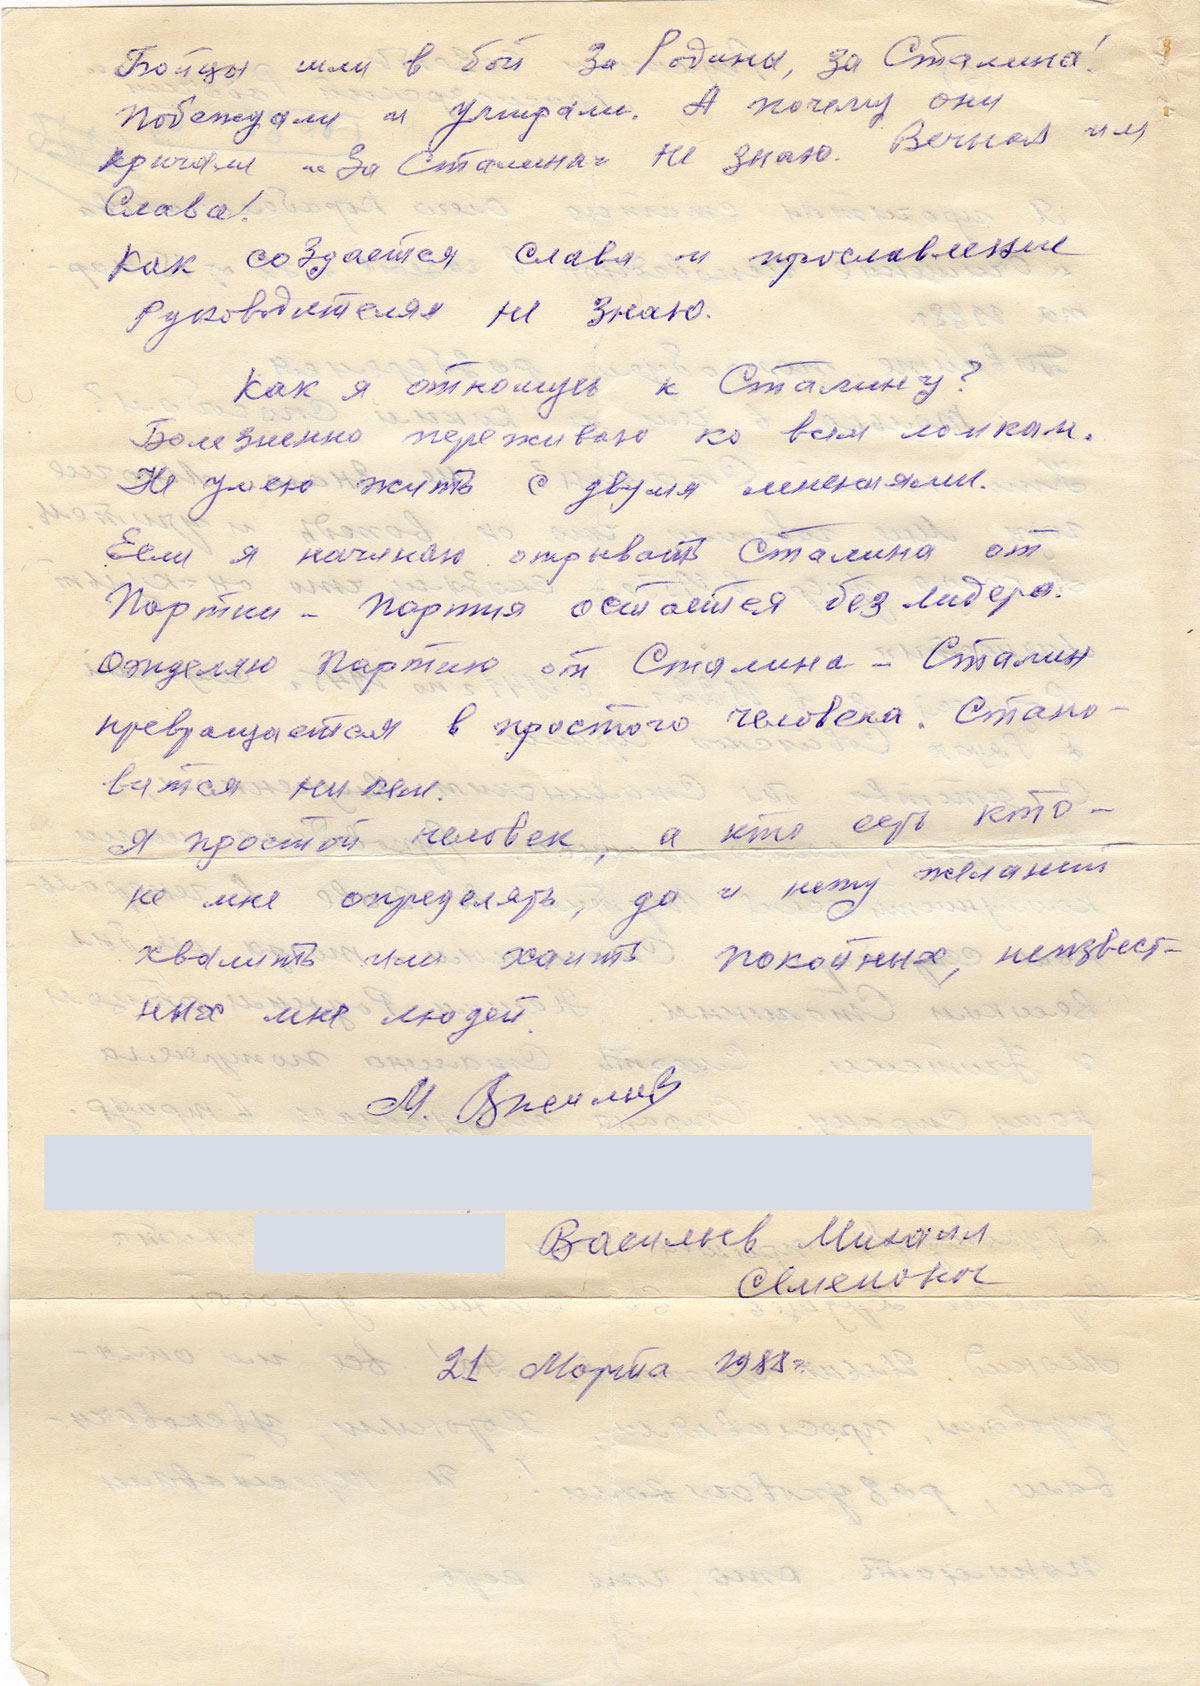 Бойцы шли в бой за Родины, за Сталина!
Побеждали и умирали. А почему они
кричали "За Сталина" не знаю. Вечная им
Слава!
Как создается слава и прославление
руководителям не знаю.
Как я отношусь к Сталину?
Болезненно переживаю ко всем ломкам.
Не умею жить с двумя мнениями.
Если я начинаю отрывать Сталина от
Партии - Партия остается без лидера.
Отделяю Партию от Сталина - Сталин
превращается в простого человека. Стано-
вится никем.
Я простой человек, а кто есть кто -
не мне определять, да и нету желаний
хвалить или хаить покойных, неизвест-
ных мне людей.
М. Васильев
Васильев Михаил
Семенович
21 Марта 1988 г